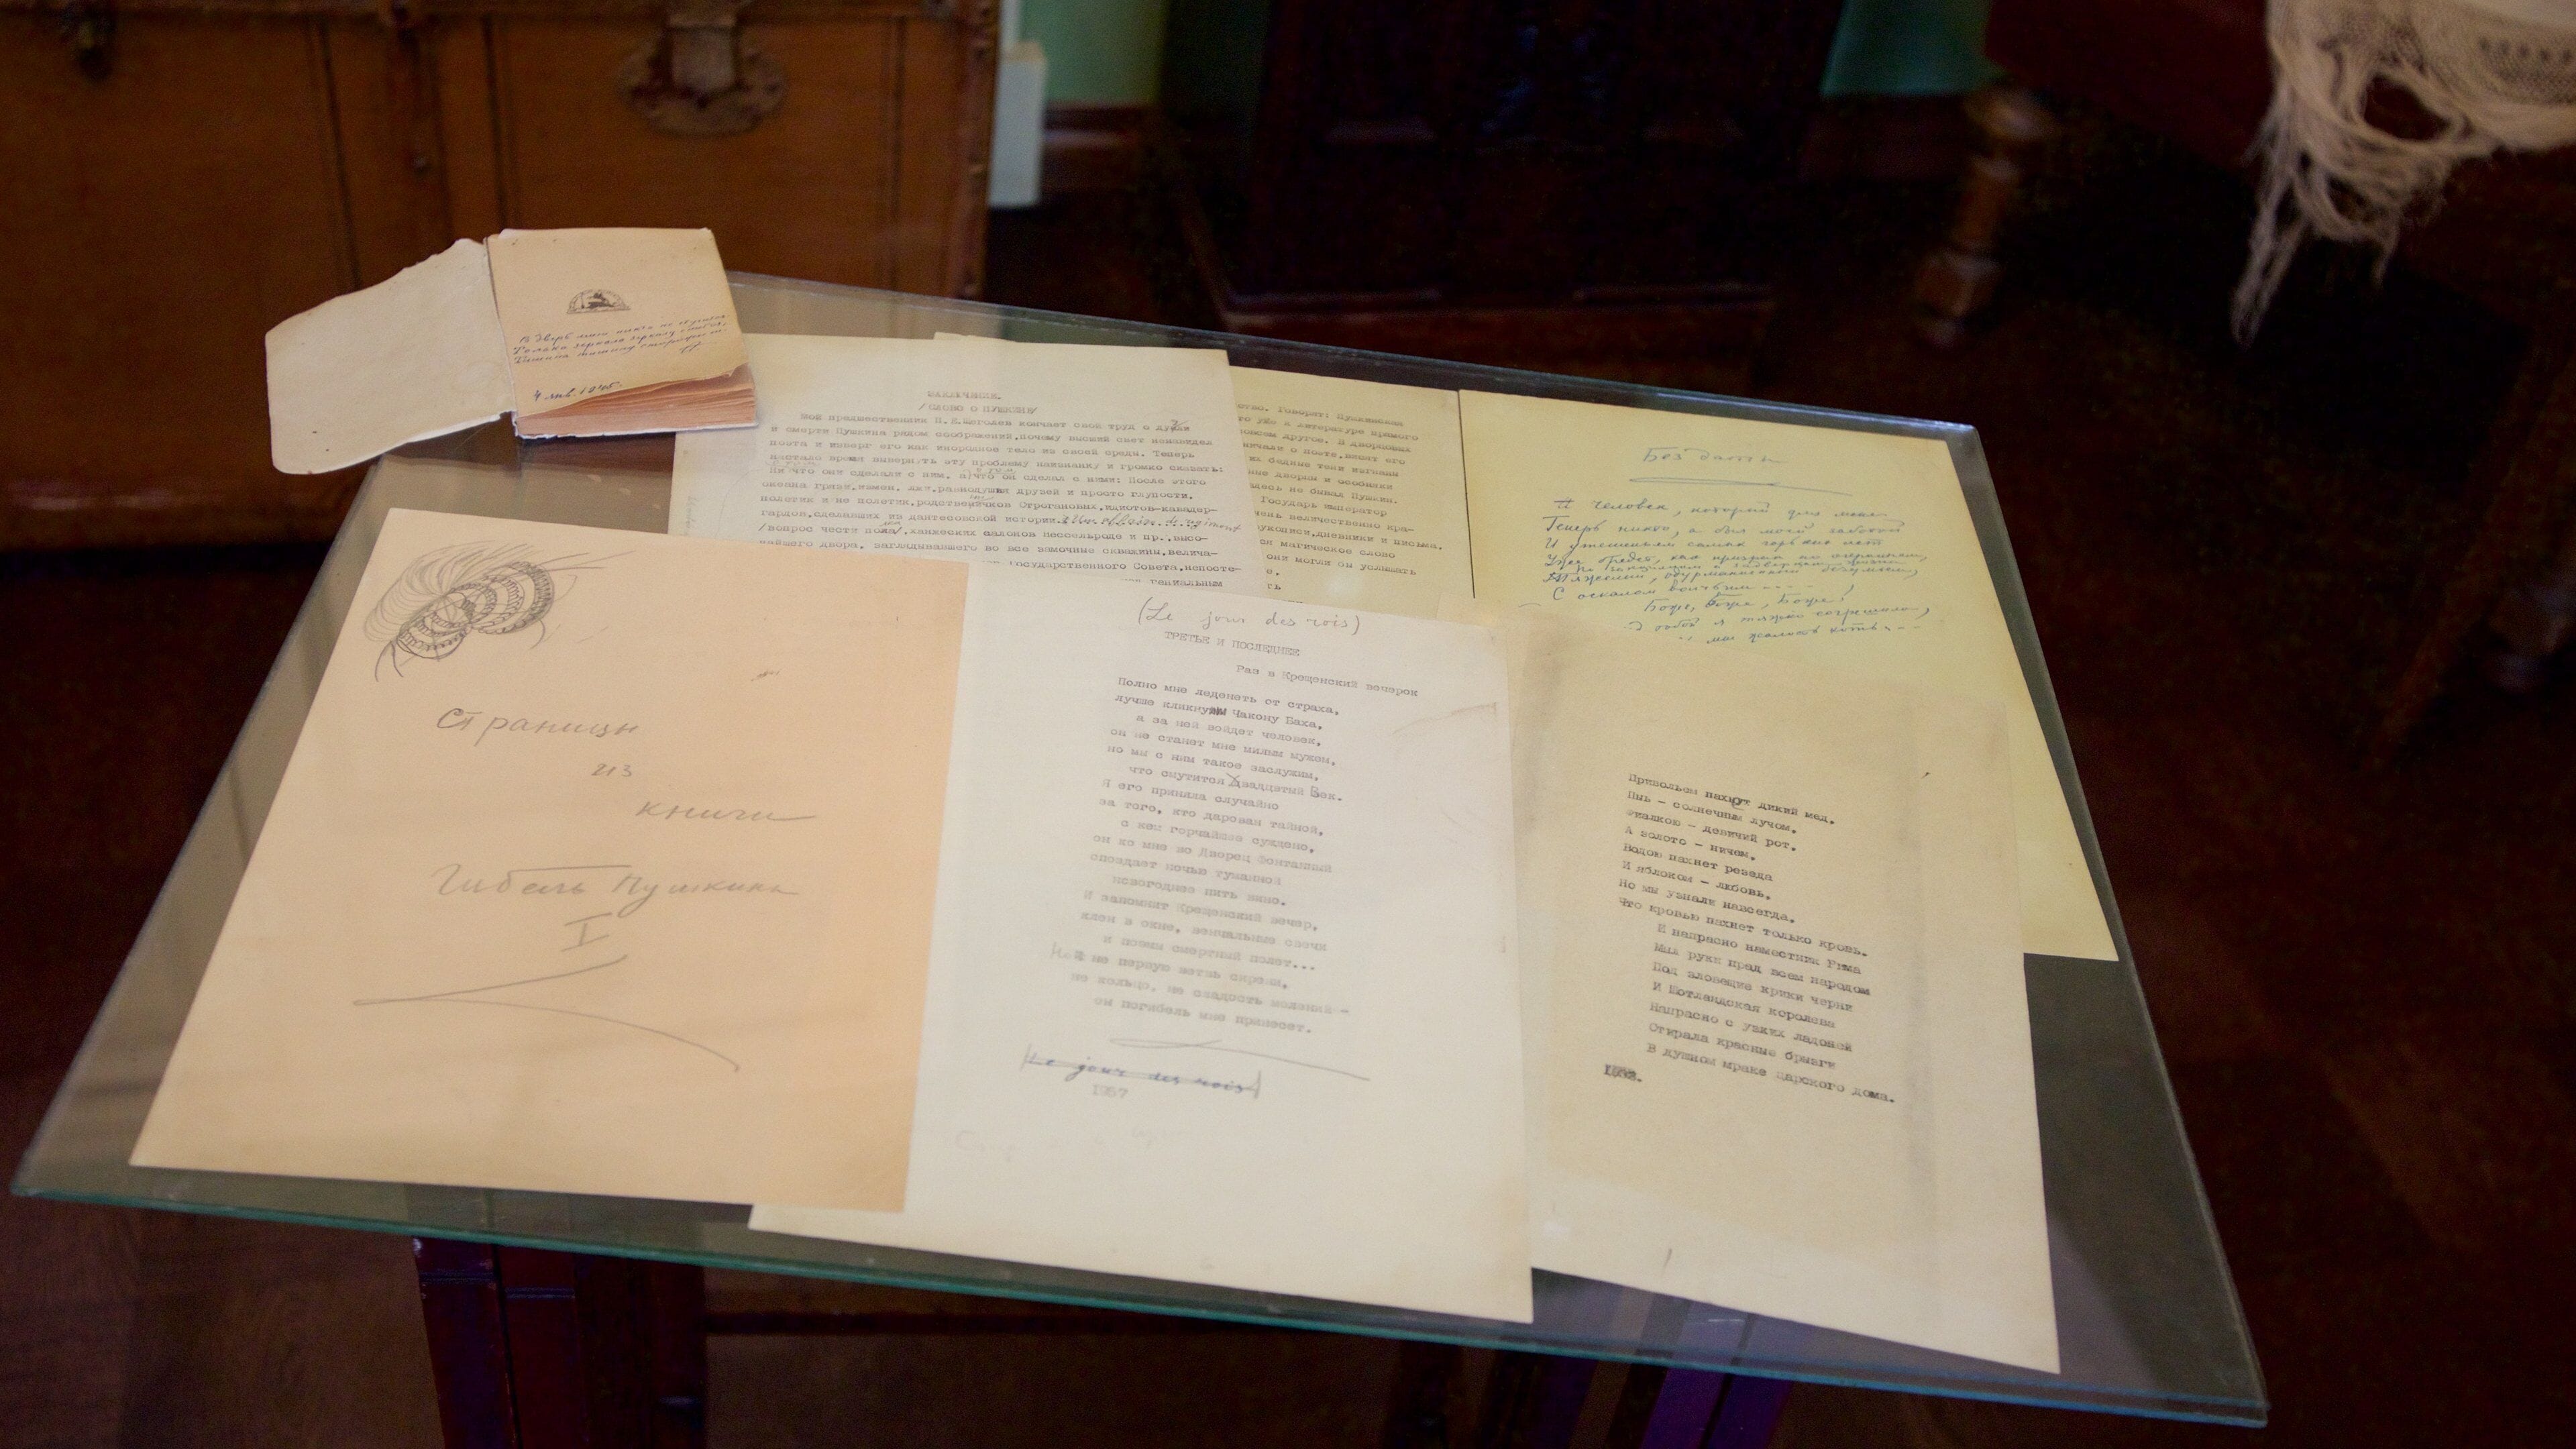 В дверь мою никто не стучится,
Только зеркало зеркалу снится,
Тишина тишину сторожит.
4 янв. 1945.
/СЛОВО О ПУШКИНЕ/
Мой предшественник П.Е.Щеголев кончает свой труд о дуэли
и смерти Пушкина рядом соображений, почему высший свет ненавидел
поэта и изверг его как инородное тело из своей среды. Теперь
настало время вывернуть эту проблему наизнанку и громко сказать:
Ни что они сделали с ним, а что он сделал с ними: После этого
океана грязи, измен, лжи, равнодушия друзей и просто глупости,
полетик и не полетик, родственничков Строгановых, идиотов-кавалер-
гардов, сделавших из дантесовской истории
/вопрос чести полка/, ханжеских салонов Нессельроде и пр., высо-
чайшего двора, заглядывавшего во все замочные скважины, велича-
Государственного Совета, непосте-
гениальным
Говорят: Пушкинская
уже к литературе прямого
совсем другое. В дворцовых
о поэте, висят его
их бедные тени изгнаны
дворцы и особняки
здесь не бывал Пушкин.
Государь император
очень величественно кра-
рукописи, дневники и письма.
магическое слово
они могли бы услышать
Без даты
И человек, который для меня
Теперь никто, а был моей заботой
И утешеньем самых горьких лет
Уже бредет, как призрак по окраинам,
По закоулкам и задворкам жизни
Тяжелый, одурманенный безумьем,
С оскалом волчьим - - - - -
Боже, Боже, Боже!
Страницы
из
книги
Гибель Пушкина
I
(Le jour des rois)
ТРЕТЬЕ И ПОСЛЕДНЕЕ
Раз в Крещенский вечерок
Полно мне леденеть от страха,
лучше кликну Чакону Баха,
а за ней войдет человек,
он не станет мне милым мужем,
но мы с ним такое заслужим,
что смутится Двадцатый Век.
Я его приняла случайно
за того, кто дарован тайной,
с кем горчайшее суждено,
он ко мне во Дворец Фонтанный
опоздает ночью туманной
новогоднее пить вино.
И запомнит Крещенский вечер,
клен в окне, венчальные свечи
и поэмы смертный полет...
Но не первую ветвь сирени,
не кольцо, не сладость молений -
он погибель мне принесет.
Le jour des rois
Привольем пахнет дикий мед,
Пыль - солнечным лучом,
Фиалкою - девичий рот,
А золото - ничем.
Водою пахнет резеда
И яблоком - любовь.
Но мы узнали навсегда,
Что кровью пахнет только кровь.
И напрасно наместник Рима
Мыл руки пред всем народом
Под зловещие крики черни
И Шотландская королева
Напрасно с узких ладоней
Стирала красные брызги
В душном мраке царского дома.